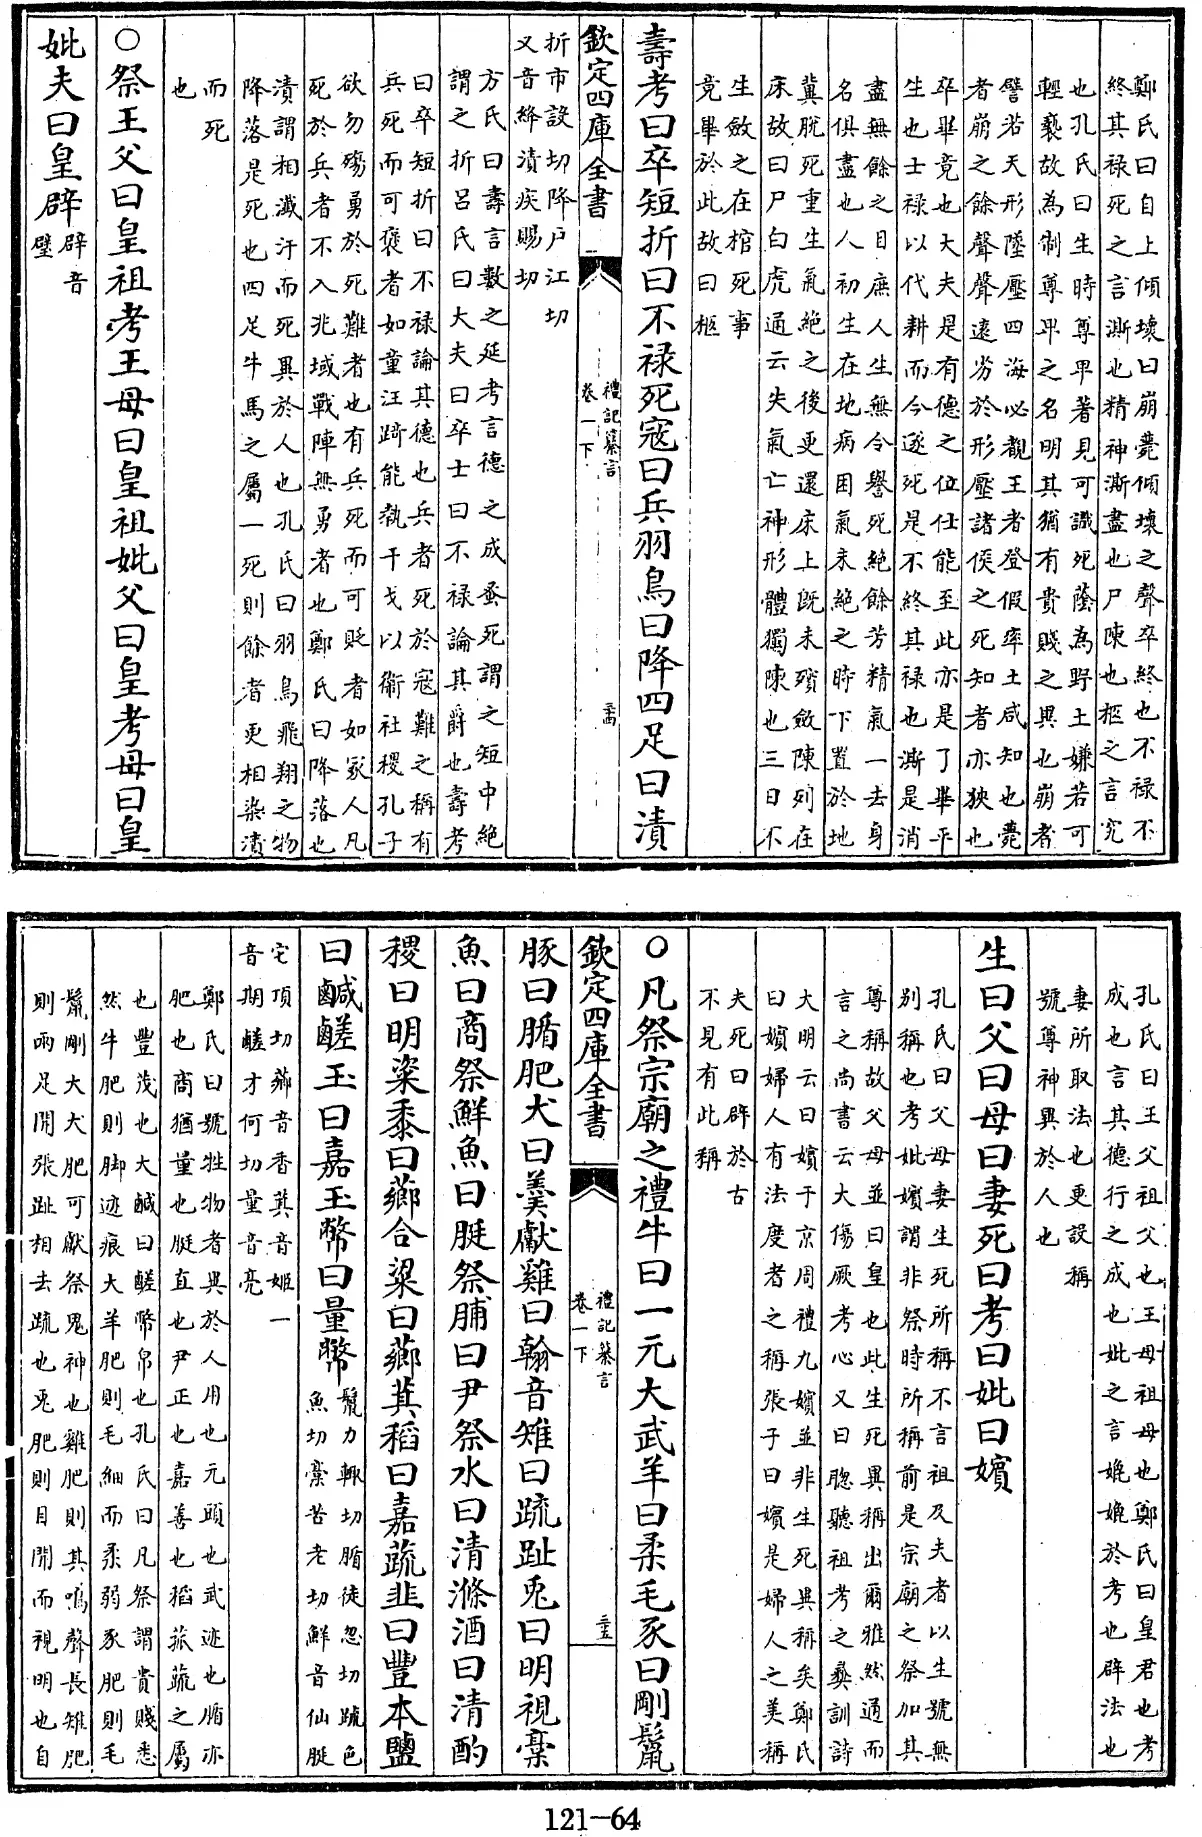 鄭氏曰自上傾壞曰崩薨傾壞之聲卒終也不禄不
終其禄死之言澌也精神澌盡也尸陳也柩之言究
也孔氏曰生時尊卑著見可識死蔭為野土嫌若可
輕褻故為制尊卑之名明其猶有貴賤之異也崩者
譬若天形墜壓四海必覩王者登假率土咸知也薨
者崩之餘聲聲遠劣於形壓諸侯之死知者亦狹也
卒畢竟也大夫是有德之位仕能至此亦是了畢平
生也士禄以代耕而今遂死是不終其禄也澌是消
盡無餘之目庶人生無令譽死絶餘芳精氣一去身
名俱盡也人初生在地病困氣未絶之時下置於地
冀脱死重生氣絶之後更還床上既未殯斂陳列在
床故曰尸白虎通云失氣亡神形體獨陳也三日不
生斂之在棺死事
竟畢於此故曰柩
壽考曰卒短折曰不禄死寇曰兵羽鳥曰降四足曰漬
欽定四庫全書
禮記纂言
卷一下
三十四
折市設切降户江切
又音絳漬疾賜切
方氏曰壽言數之延考言德之成蚤死謂之短中絶
謂之折吕氏曰大夫曰卒士曰不禄論其爵也壽考
曰卒短折曰不禄論其德也兵者死於寇難之稱有
兵死而可褒者如童汪踦能執干戈以衞社稷孔子
欲勿殤勇於死難者也有兵死而可貶者如冢人凡
死於兵者不入兆域戰陣無勇者也鄭氏曰降落也
漬謂相瀸汙而死異於人也孔氏曰羽鳥飛翔之物
降落是死也四足牛馬之屬一死則餘者更相染漬
而死
也
○祭王父曰皇祖考王母曰皇祖妣父曰皇考母曰皇
妣夫曰皇辟
辟音
璧
孔氏曰王父祖父也王母祖母也鄭氏曰皇君也考
成也言其德行之成也妣之言媲媲於考也辟法也
妻所取法也更設稱
號尊神異於人也
生曰父曰母曰妻死曰考曰妣曰嬪
孔氏曰父母妻生死所稱不言祖及夫者以生號無
別稱也考妣嬪謂非祭時所稱前是宗廟之祭加其
尊稱故父母並曰皇也此生死異稱出爾雅然通而
言之尚書云大傷厥考心又曰聰聽祖考之彝訓詩
大明云曰嬪于京周禮九嬪並非生死異稱矣鄭氏
曰嬪婦人有法度者之稱張子曰嬪是婦人之美稱
夫死曰辟於古
不見有此稱
○凡祭宗廟之禮牛曰一元大武羊曰柔毛豕曰剛鬣
欽定四庫全書
禮記纂言
卷一下
三十五
豚曰腯肥犬曰羮獻雞曰翰音雉曰疏趾兎曰明視槀
魚曰商祭鮮魚曰脡祭脯曰尹祭水曰清滌酒曰清酌
稷曰明粢黍曰薌合粱曰薌萁稻曰嘉蔬韭曰豐本鹽
曰鹹鹺玉曰嘉玉幣曰量幣
鬣力輒切腯徒忽切疏色
魚切槀苦老切鮮音仙脡
它頂切薌音香萁音姬一
音期鹺才何切量音亮
鄭氏曰號牲物者異於人用也元頭也武迹也腯亦
肥也商猶量也脡直也尹正也嘉善也稻菰蔬之屬
也豐茂也大鹹曰鹺幣帛也孔氏曰凡祭謂貴賤悉
然牛肥則脚迹痕大羊肥則毛細而柔弱豕肥則毛
鬣剛大犬肥可獻祭鬼神也雞肥則其鳴聲長雉肥
則兩足開張趾相去疏也兎肥則目開而視明也自
121-64